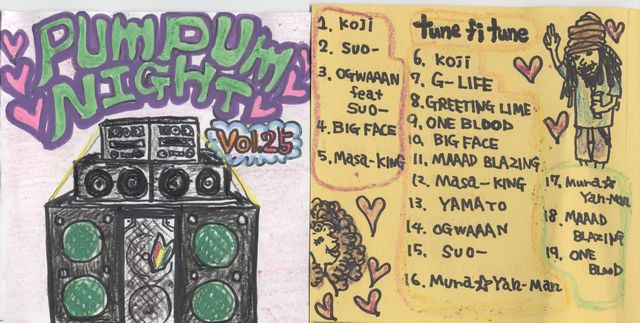 PUMPUM
NIGHT
Vol.25
1. KOJI
2. SUO-
3. OGWAAAN
feat
SUO-
4. BIG FACE
5. MASA-KING
tune fi tune
6. KOJI
7. G-LIFE
8. GREETING LIME
9. ONE BLOOD
10. BIG FACE
11. MAAAD BLAZING
12. MASA-KING
13. YAMATO
14. OGWAAAN
15. SUO-
16. Mura☆Yah-Man
17. Mura☆
Yah-Man
18. MAAAD
BLAZING
19. ONE
BLOOD